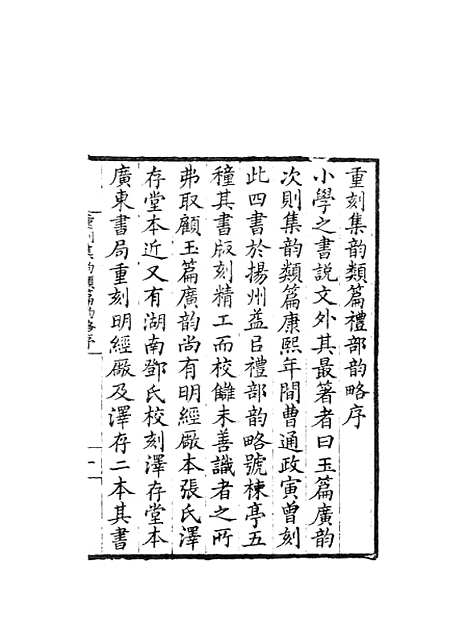 重刻集韵類篇禮部韵略序
小學之書說文外其最著者曰玉篇廣韵
次則集韵類篇康熙年間曹通政寅曾刻
此四書於揚州益㠯禮部韵略號楝亭五
種其書版刻精工而校讎未善識者之所
弗取顧玉篇廣韵尚有明經厰本張氏澤
存堂本近又有湖南鄧氏校刻澤存堂本
廣東書局重刻明經厰及澤存二本其書